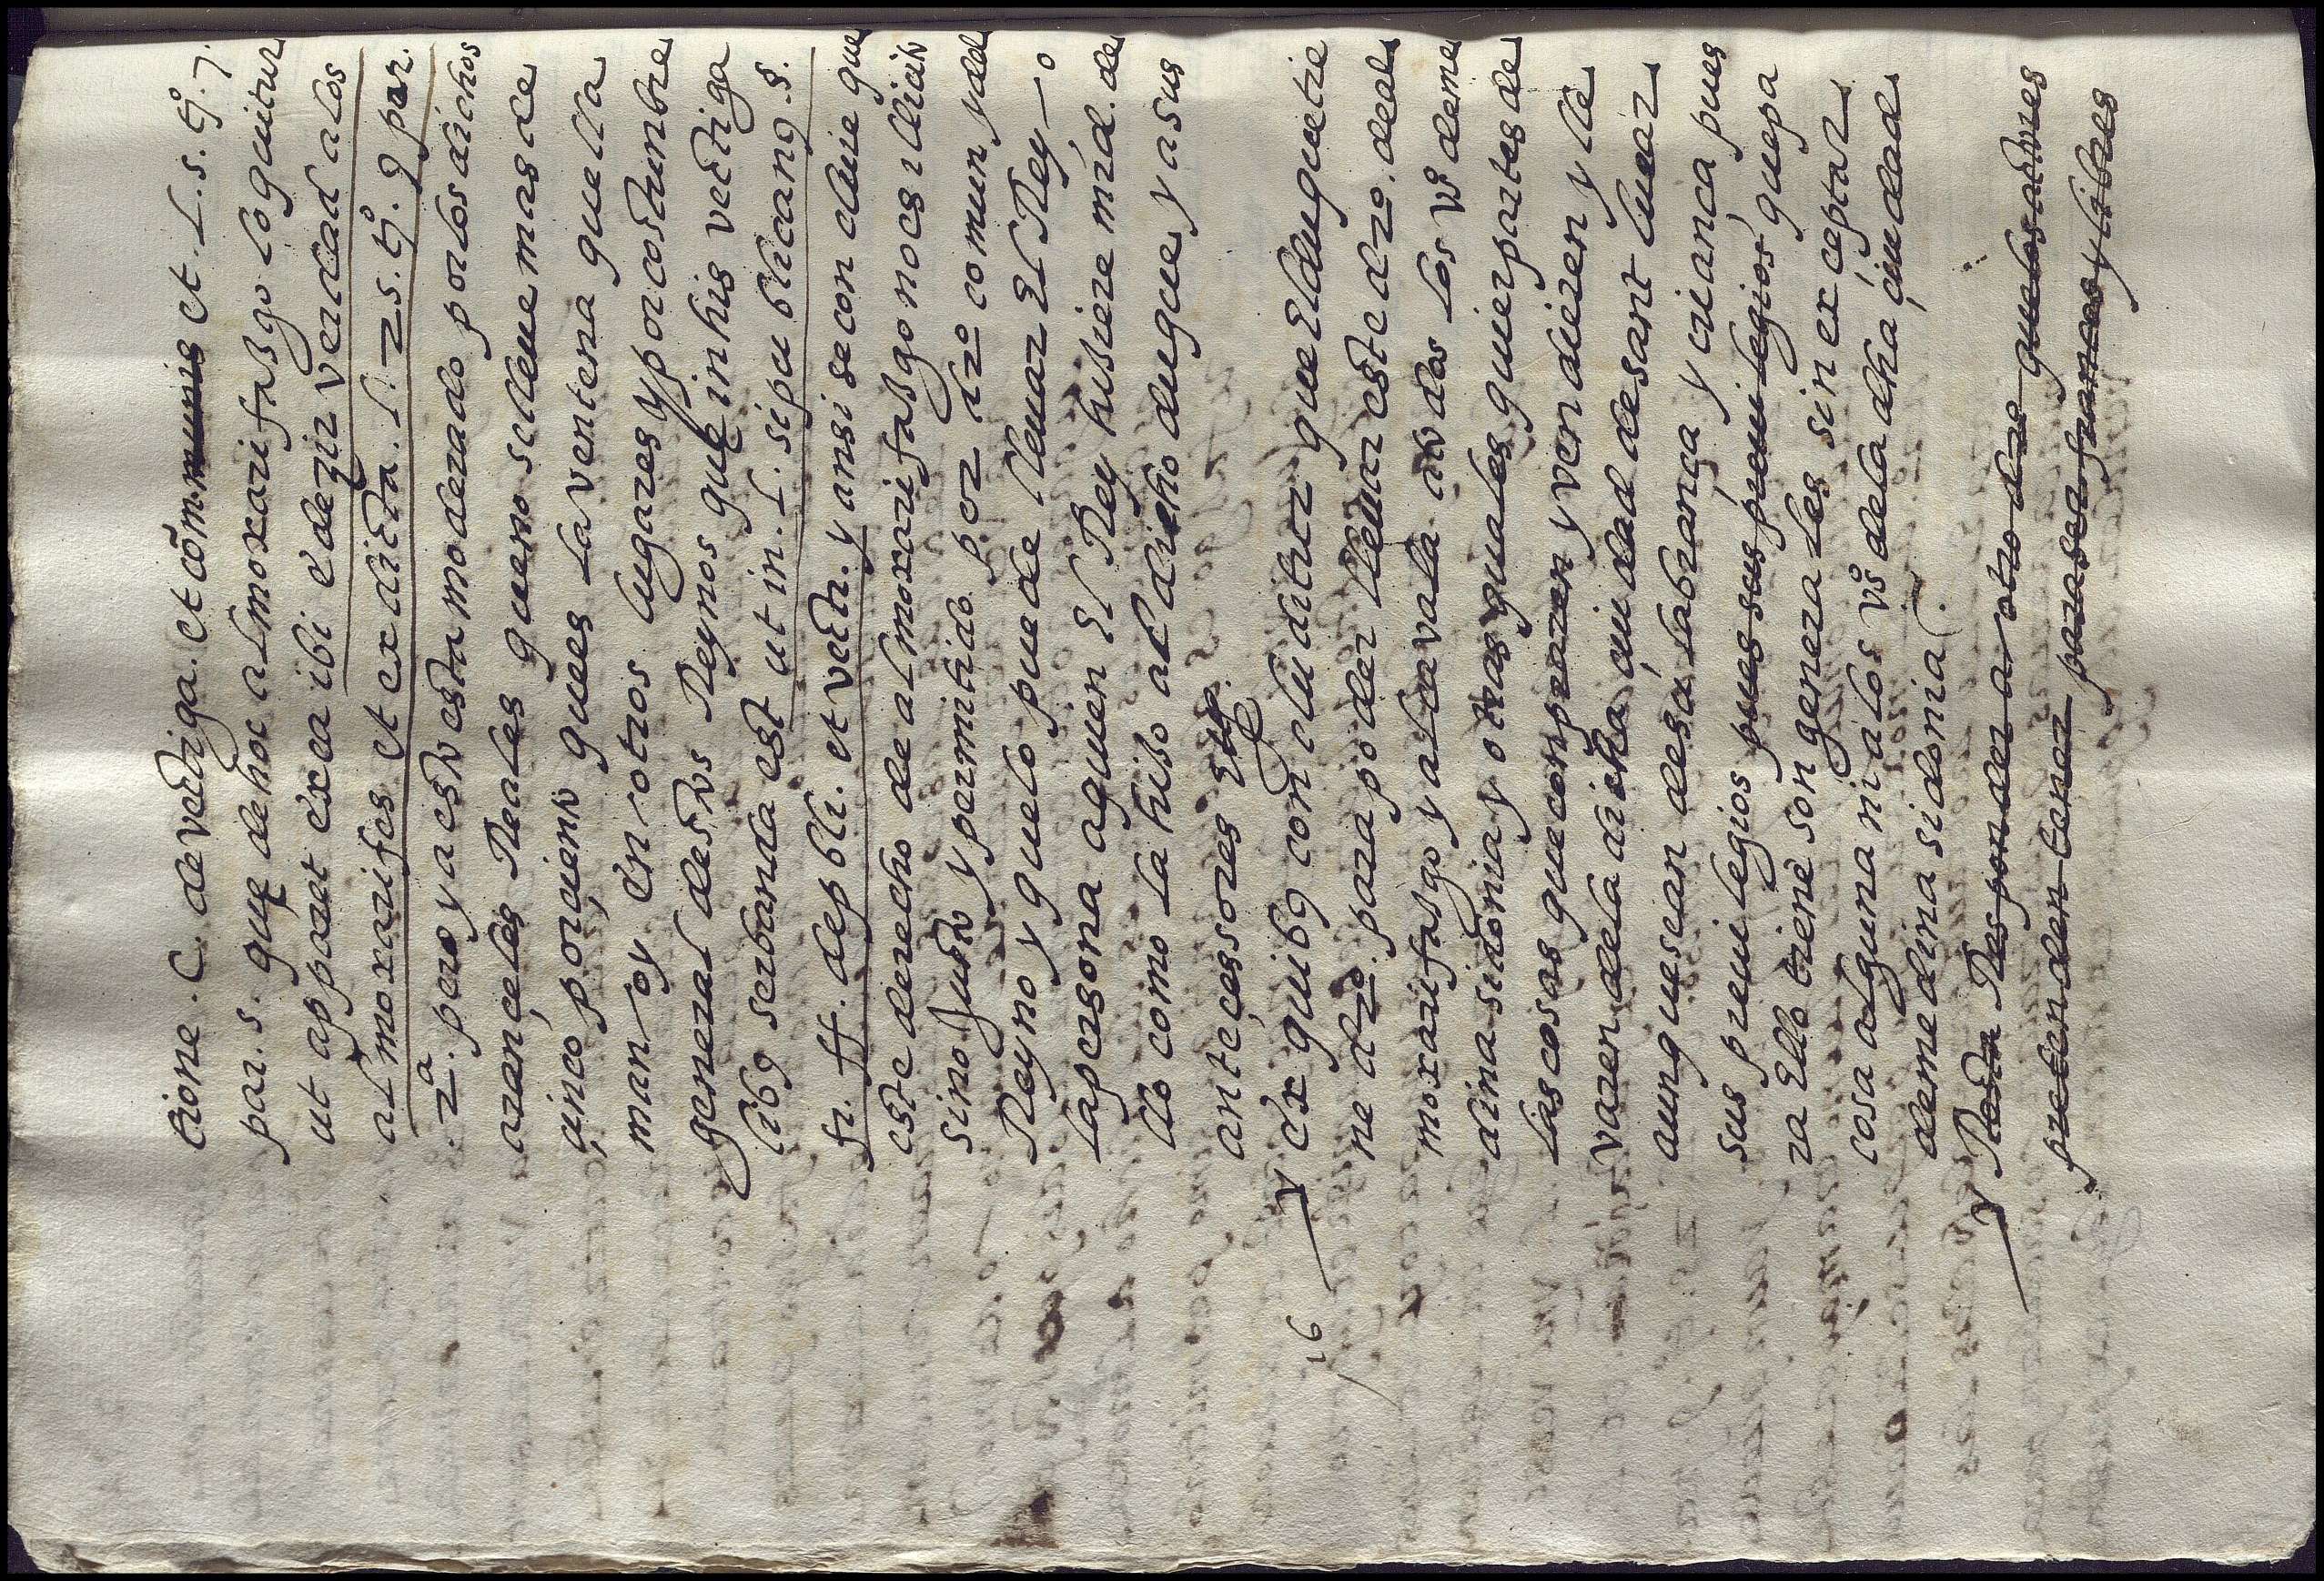 tione. C. de vectiga. et cōm. munis et. l. 5. tj̊. 7.
par. 5. que de hoc almoxarifasgo loquitur
ut apparet ex ea ibi e dezir verdad a los
almoxarifes et ex dicta. l. 25. tj̊. 9 par.
.2ª. pero ya esto esta moderado por los dichos
arançeles Reales que no se lleue mas de
çinco por ciento que es la ventena que lla
man oy en otros lugares y por costunbre
general destos Reynos que in his vectiga
lib9 serbanda est ut in. l. si publican9. §.
fi. ff. de publi. et vecti. y ansi se concluie que
este derecho de almoxarifasgo no es illicito
sino Justo y permitido por dr̄o comun y del
Reyno y que lo puede lleuar El Rey o
la persona a quien El Rey hisiere mrd. de
llo como la hiso al dicho duque y a sus
anteçessores
16 y Ex quib9 concluditur que El duque tie
ne dr̄o. para poder lleuar este dr̄o. de al
moxarifasgo y alcavala a todos los vº de me
dina sidonia y otras quales quier partes de
las cosas que conpraren y vendieren y lle
varen de la dicha çiudad de sant lucar
aunque sean de su labrança y criança pues
sus preuilegios pues sus preuilegios que pa
ra Ello tiene son generales sin exceptar
cosa alguna ni a los vº de la dha çiudad
de medina sidonia.
y Resta Responder a otro dr̄o que los
pretenden tener para ser francos y libres